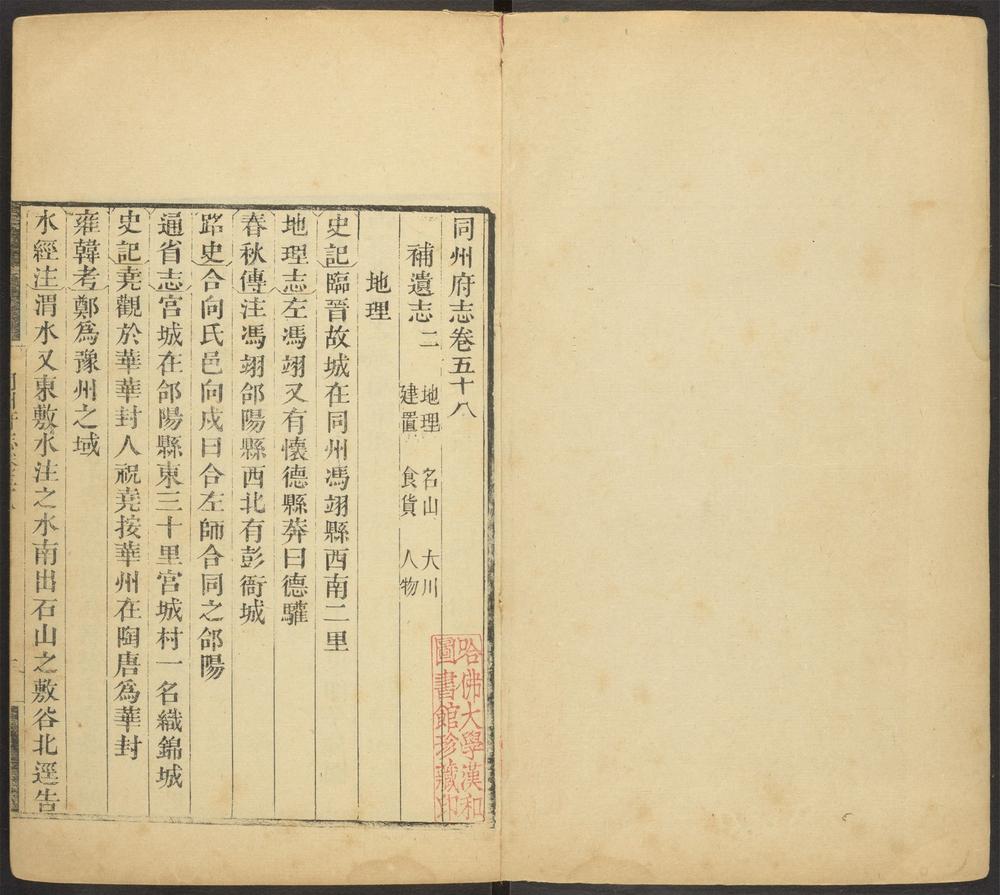 同州府志卷五十八
補遺志二
地理 名山 大川
建置 食貨 人物
地理
史記臨晉故城在同州馮翊縣西南二里
地理志左馮翊又有懷德縣莽曰德驩
春秋傳注馮翊郃陽縣西北有彭衙城
路史合向氏邑向戍曰合左師合同之郃陽
通省志宮城在郃陽縣東三十里宮城村一名織錦城
史記堯觀於華華封人祝堯按華州在陶唐爲華封
雍韓考鄭爲豫州之域
水經注渭水又東敷水注之水南出石山之敷谷北逕告
哈佛大學漢和
圖書館珍藏印